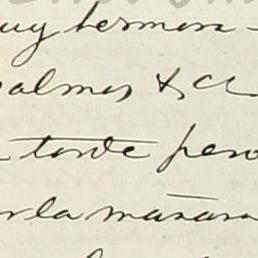 uy hermosa
palmas &ca
tarde pero
la mañana